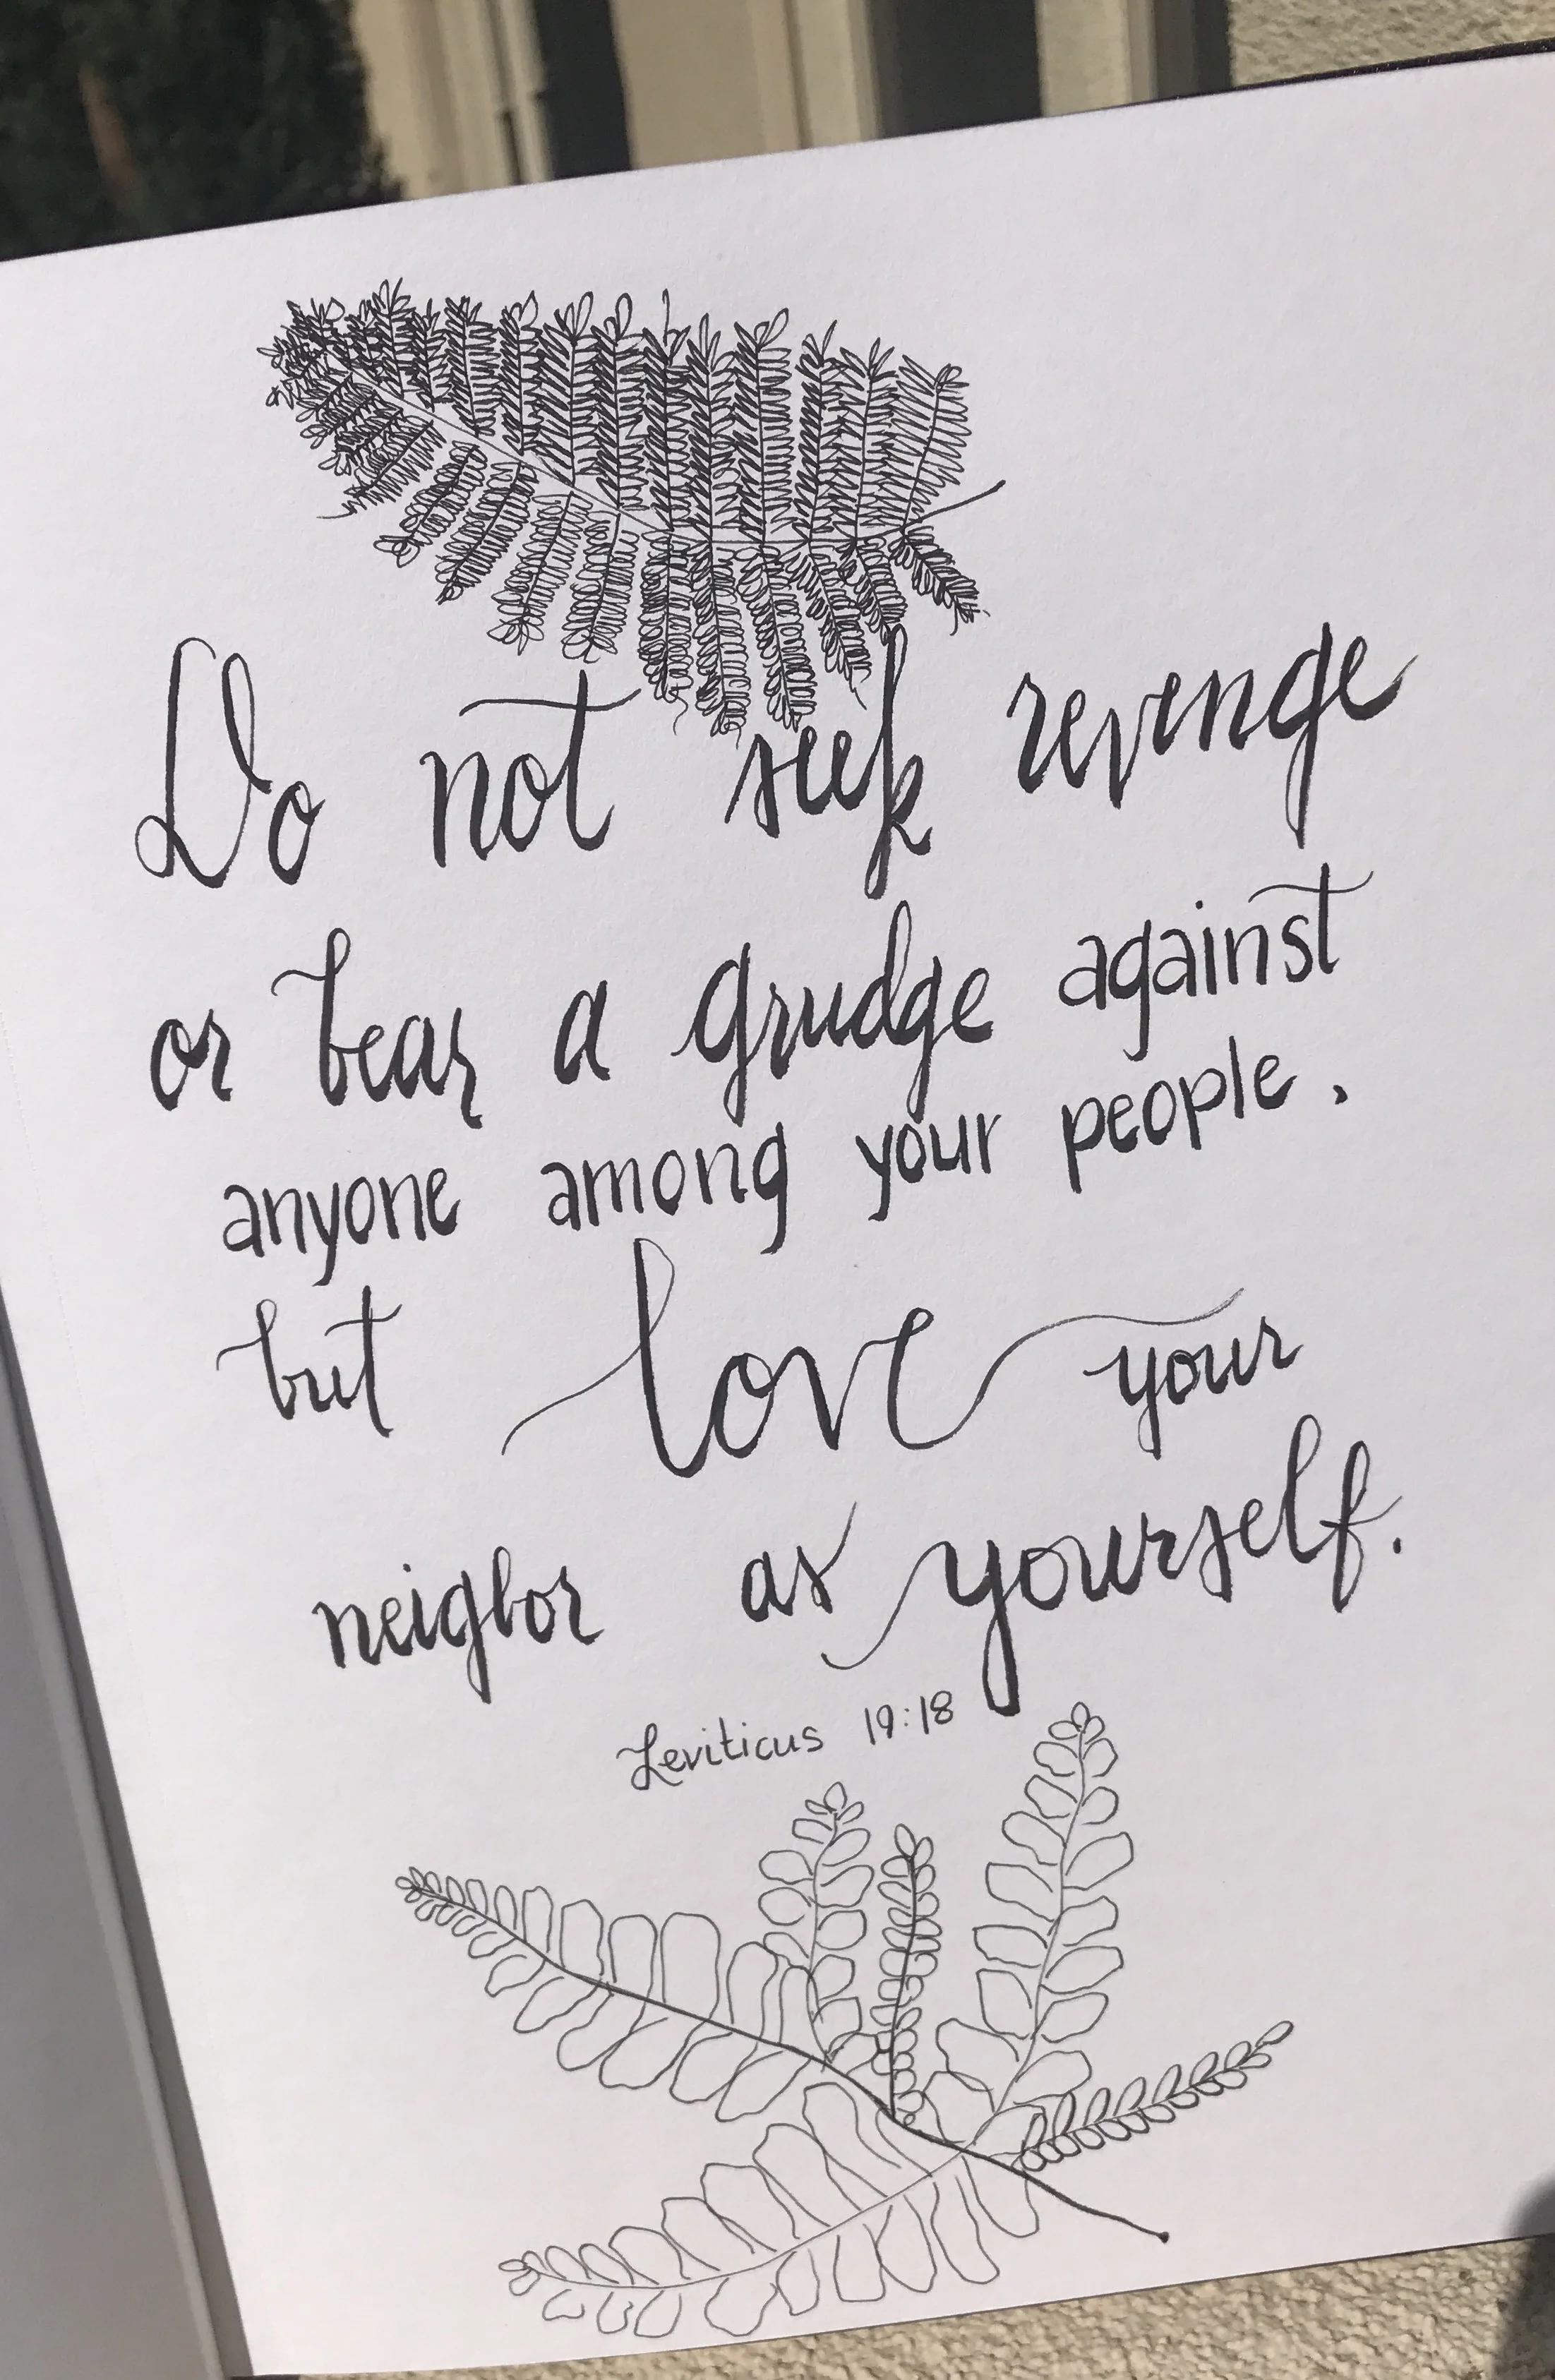 Do not seek revenge
or bear a grudge against
anyone among your people,
but love your
neigbor as yourself.
Leviticus 19:18